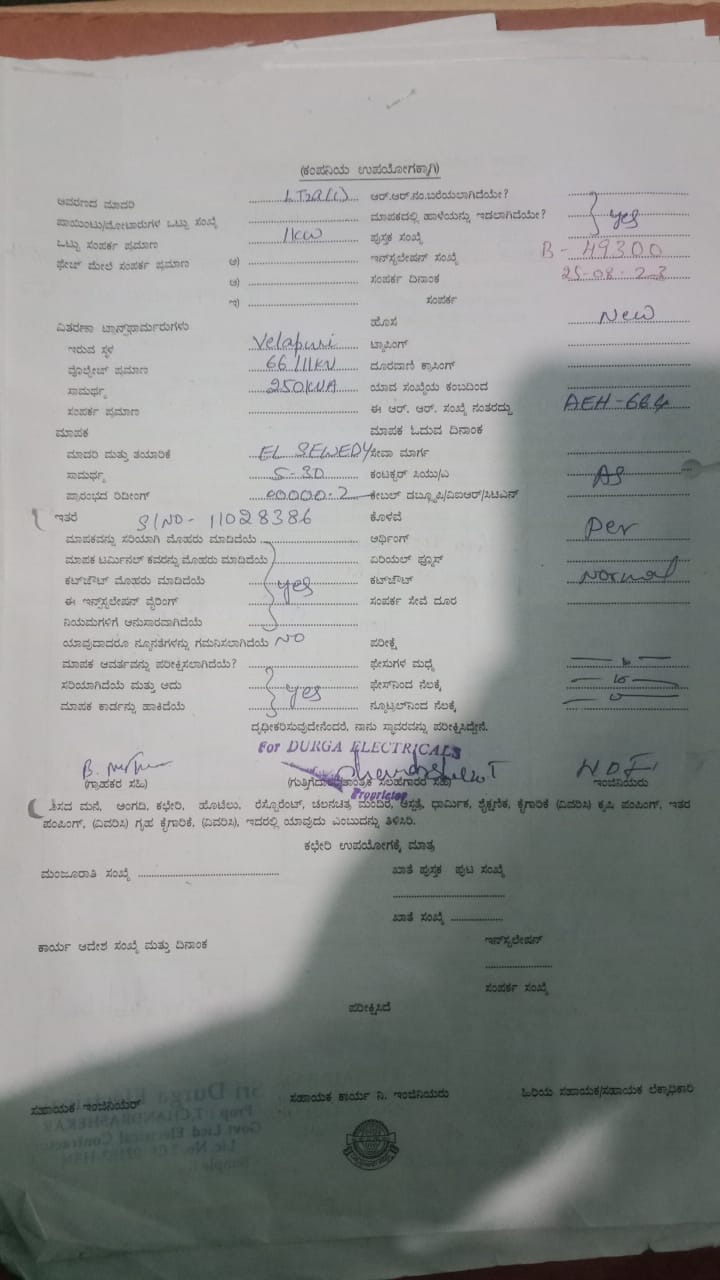 (ಕಂಪನಿಯ ಉಪಯೋಗಕ್ಕಾಗಿ)
ಆವರಣದ ಮಾದರಿ LT2a(i) ಆರ್.ಆರ್.ನಂ.ಬರೆಯಲಾಗಿದೆಯೇ?
ಪಾಯಿಂಟು/ಮೋಟಾರುಗಳ ಒಟ್ಟು ಸಂಖ್ಯೆ ಮಾಪಕದಲ್ಲಿ ಹಾಳೆಯನ್ನು ಇಡಲಾಗಿದೆಯೇ? yes
ಒಟ್ಟು ಸಂಪರ್ಕ ಪ್ರಮಾಣ 1kw ಪುಸ್ತಕ ಸಂಖ್ಯೆ
ಫೇಜ್ ಮೇಲೆ ಸಂಪರ್ಕ ಪ್ರಮಾಣ ಅ) ಇನ್‌ಸ್ಟಲೇಷನ್ ಸಂಖ್ಯೆ B - 49300
ಆ) ಸಂಪರ್ಕ ದಿನಾಂಕ 25-08-23
ಇ) ಸಂಪರ್ಕ
ವಿತರಣಾ ಟ್ರಾನ್ಸ್‌ಫಾರ್ಮರುಗಳು ಹೊಸ New
ಇರುವ ಸ್ಥಳ Velapuri ಟ್ಯಾಪಿಂಗ್
ವೋಲ್ಟೇಜ್ ಪ್ರಮಾಣ 66/11KV ದೂರವಾಣಿ ಕ್ರಾಸಿಂಗ್
ಸಾಮರ್ಥ್ಯ 250KVA ಯಾವ ಸಂಖ್ಯೆಯ ಕಂಬದಿಂದ
ಸಂಪರ್ಕ ಪ್ರಮಾಣ ಈ ಆರ್. ಆರ್. ಸಂಖ್ಯೆ ನಂತರದ್ದು AEH-664
ಮಾಪಕ ಮಾಪಕ ಓದುವ ದಿನಾಂಕ
ಮಾದರಿ ಮತ್ತು ತಯಾರಿಕೆ EL SEWEDY ಸೇವಾ ಮಾರ್ಗ
ಸಾಮರ್ಥ್ಯ 5-30 ಕಂಟಕ್ಟರ್ ಸಿಯು/ಎ As
ಪ್ರಾರಂಭದ ರಿಡೀಂಗ್ 00000.2 ಕೇಬಲ್ ಡಬ್ಲ್ಯೂಪಿ/ವಿಐಆರ್/ಸಿಟಿಎಸ್
ಇತರೆ S/NO- 11028386 ಕೊಳವೆ
ಮಾಪಕವನ್ನು ಸರಿಯಾಗಿ ಮೊಹರು ಮಾಡಿದೆಯೆ ಅರ್ಥಿಂಗ್ per
ಮಾಪಕ ಟರ್ಮಿನಲ್ ಕವರನ್ನು ಮೊಹರು ಮಾಡಿದೆಯೆ ಏರಿಯಲ್ ಫ್ಯೂಸ್
ಕಟ್‌ಔಟ್ ಮೊಹರು ಮಾಡಿದೆಯೆ yes ಕಟ್‌ಔಟ್ Normal
ಈ ಇನ್‌ಸ್ಟಲೇಷನ್ ವೈರಿಂಗ್ ಸಂಪರ್ಕ ಸೇವೆ ದೂರ
ನಿಯಮಗಳಿಗೆ ಅನುಸಾರವಾಗಿದೆಯೆ
ಯಾವುದಾದರೂ ನ್ಯೂನತೆಗಳನ್ನು ಗಮನಿಸಲಾಗಿದೆಯೆ NO ಪರೀಕ್ಷೆ
ಮಾಪಕ ಆವರ್ತವನ್ನು ಪರೀಕ್ಷಿಸಲಾಗಿದೆಯೆ? ಫೇಸುಗಳ ಮಧ್ಯೆ
ಸರಿಯಾಗಿದೆಯೆ ಮತ್ತು ಅದು yes ಫೇಸ್‌ನಿಂದ ನೆಲಕ್ಕೆ
ಮಾಪಕ ಕಾರ್ಡನ್ನು ಹಾಕಿದೆಯೆ ನ್ಯೂಟ್ರಲ್‌ನಿಂದ ನೆಲಕ್ಕೆ
ದೃಢೀಕರಿಸುವುದೇನೆಂದರೆ, ನಾನು ಸ್ಥಾವರವನ್ನು ಪರೀಕ್ಷಿಸಿದ್ದೇನೆ.
For DURGA ELECTRICALS
(ಗ್ರಾಹಕರ ಸಹಿ) (ಗುತ್ತಿಗೆದಾರ/ತಾಂತ್ರಿಕ ಸಲಹಾಗಾರರ ಸಹಿ) ಇಂಜಿನಿಯರು
Proprietor
ವಾಸದ ಮನೆ, ಅಂಗಡಿ, ಕಛೇರಿ, ಹೊಟೆಲು, ರೆಸ್ಟೊರೆಂಟ್, ಚಲನಚಿತ್ರ ಮಂದಿರ, ಆಸ್ಪತ್ರೆ, ಧಾರ್ಮಿಕ, ಶೈಕ್ಷಣಿಕ, ಕೈಗಾರಿಕೆ (ವಿವರಿಸಿ) ಕೃಷಿ ಪಂಪಿಂಗ್, ಇತರ
ಪಂಪಿಂಗ್, (ವಿವರಿಸಿ) ಗೃಹ ಕೈಗಾರಿಕೆ, (ವಿವರಿಸಿ), ಇದರಲ್ಲಿ ಯಾವುದು ಎಂಬುದನ್ನು ತಿಳಿಸಿರಿ.
ಕಛೇರಿ ಉಪಯೋಗಕ್ಕೆ ಮಾತ್ರ
ಮಂಜೂರಾತಿ ಸಂಖ್ಯೆ ಖಾತೆ ಪುಸ್ತಕ ಪುಟ ಸಂಖ್ಯೆ
ಖಾತೆ ಸಂಖ್ಯೆ
ಕಾರ್ಯ ಆದೇಶ ಸಂಖ್ಯೆ ಮತ್ತು ದಿನಾಂಕ ಇನ್‌ಸ್ಟಲೇಷನ್
ಸಂಪರ್ಕ ಸಂಖ್ಯೆ
ಪರೀಕ್ಷಿಸಿದೆ
ಸಹಾಯಕ ಇಂಜಿನಿಯರ್ ಸಹಾಯಕ ಕಾರ್ಯ ನಿ. ಇಂಜಿನಿಯರು ಹಿರಿಯ ಸಹಾಯಕ/ಸಹಾಯಕ ಲೆಕ್ಕಾಧಿಕಾರಿ